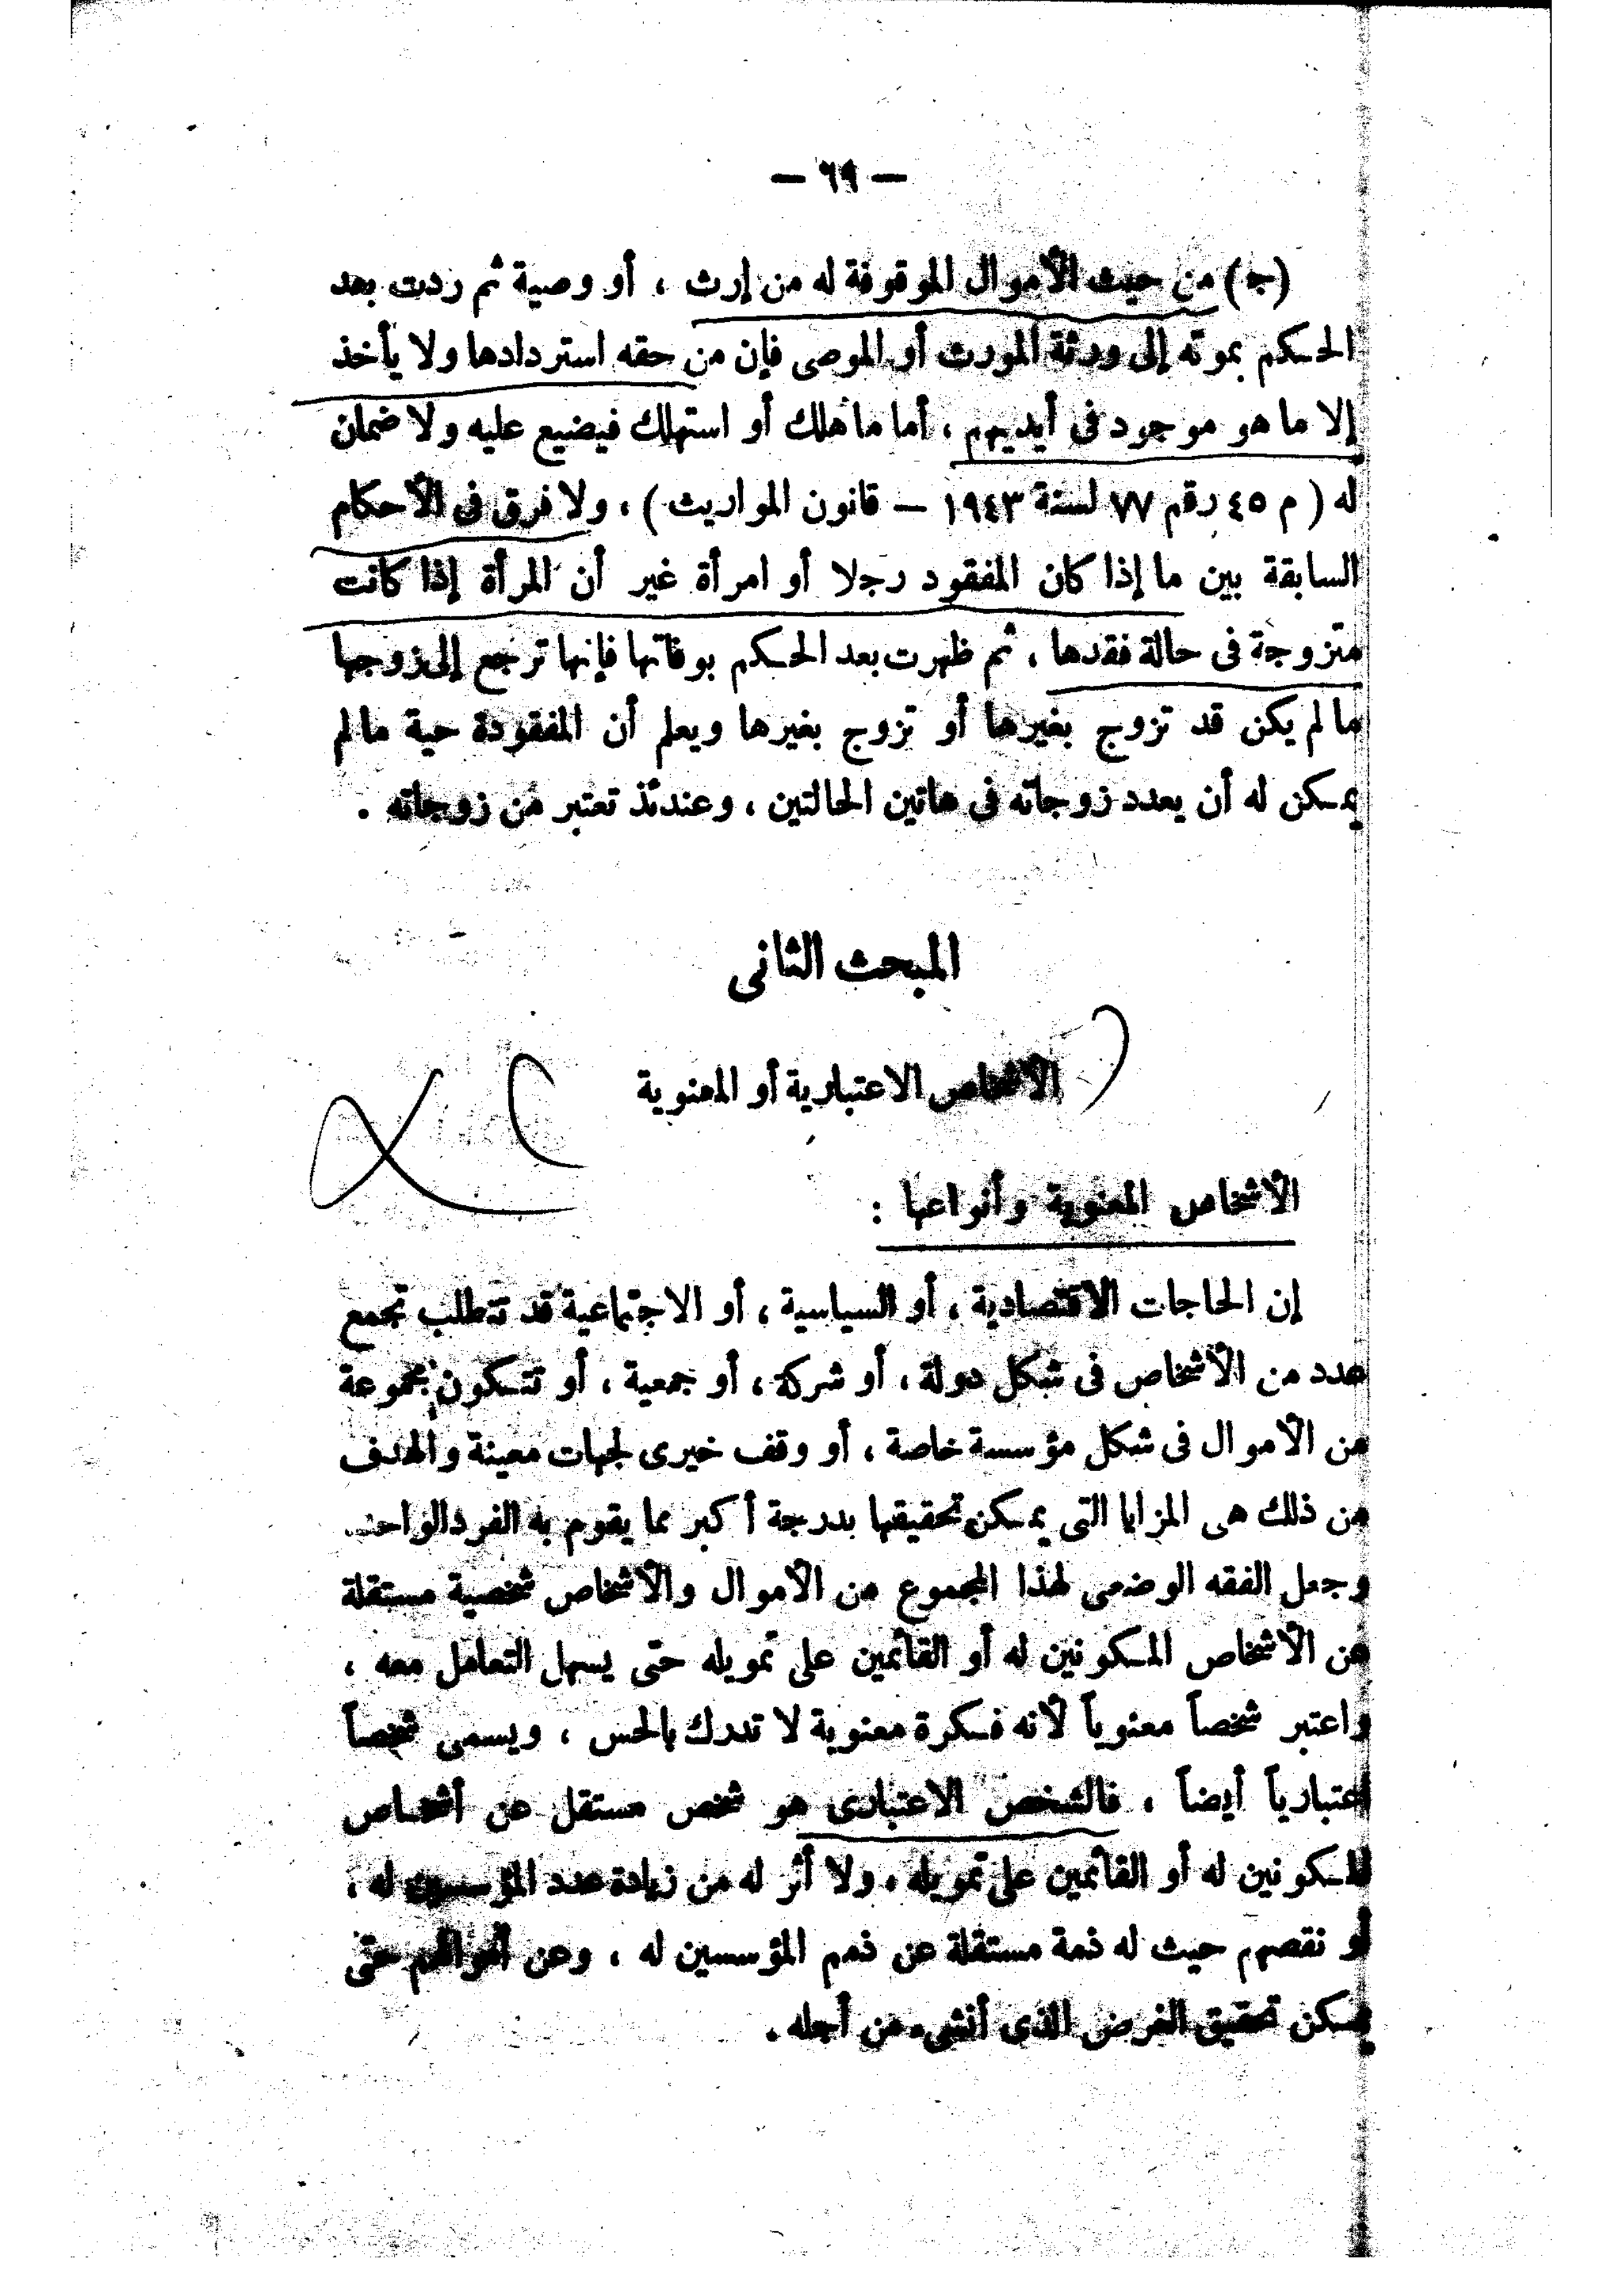 — ٦٩ —
(ج) من حيث الأموال الموقوفة له من إرث ، أو وصية ثم ردت بعد
الحكم بموته إلى ورثة المورث أو الموصى فإن من حقه استردادها ولا يأخذ
إلا ما هو موجود فى أيديهم ، أما ما هلك أو استهلك فيضيع عليه ولا ضمان
له ( م ٤٥ رقم ٧٧ لسنة ١٩٤٣ — قانون المواريث ) ، ولا فرق فى الأحكام
السابقة بين ما إذا كان المفقود رجلا أو امرأة غير أن المرأة إذا كانت
متزوجة فى حالة فقدها ، ثم ظهرت بعد الحكم بوفاتها فإنها ترجع إلى زوجها
ما لم يكن قد تزوج بغيرها أو تزوج بغيرها ويعلم أن المفقودة حية مالم
يمكن له أن يعدد زوجاته فى هاتين الحالتين ، وعندئذ تعتبر من زوجاته .
المبحث الثانى
الأشخاص الاعتبارية أو المعنوية
الأشخاص المعنوية وأنواعها :
إن الحاجات الاقتصادية ، أو السياسية ، أو الاجتماعية قد تتطلب تجمع
عدد من الأشخاص فى شكل دولة ، أو شركة ، أو جمعية ، أو تتكون مجموعة
من الأموال فى شكل مؤسسة خاصة ، أو وقف خيرى لجهات معينة والهدف
من ذلك هى المزايا التى يمكن تحقيقها بدرجة أكبر مما يقوم به الفرد الواحد
وجعل الفقه الوضعى لهذا المجموع من الأموال والأشخاص شخصية مستقلة
عن الأشخاص المكونين له أو القائمين على تمويله حتى يسهل التعامل معه ،
واعتبر شخصاً معنوياً لأنه فكرة معنوية لا تدرك بالحس ، ويسمى شخصاً
اعتبارياً أيضاً ، فالشخص الاعتبارى هو شخص مستقل عن أشخاص
المكونين له أو القائمين على تمويله ، ولا أثر له من زيادة عدد المؤسسين له ،
أو نقصهم حيث له ذمة مستقلة عن ذمم المؤسسين له ، وعن أموالهم حتى
يمكن تحقيق الغرض الذى أنشىء من أجله .